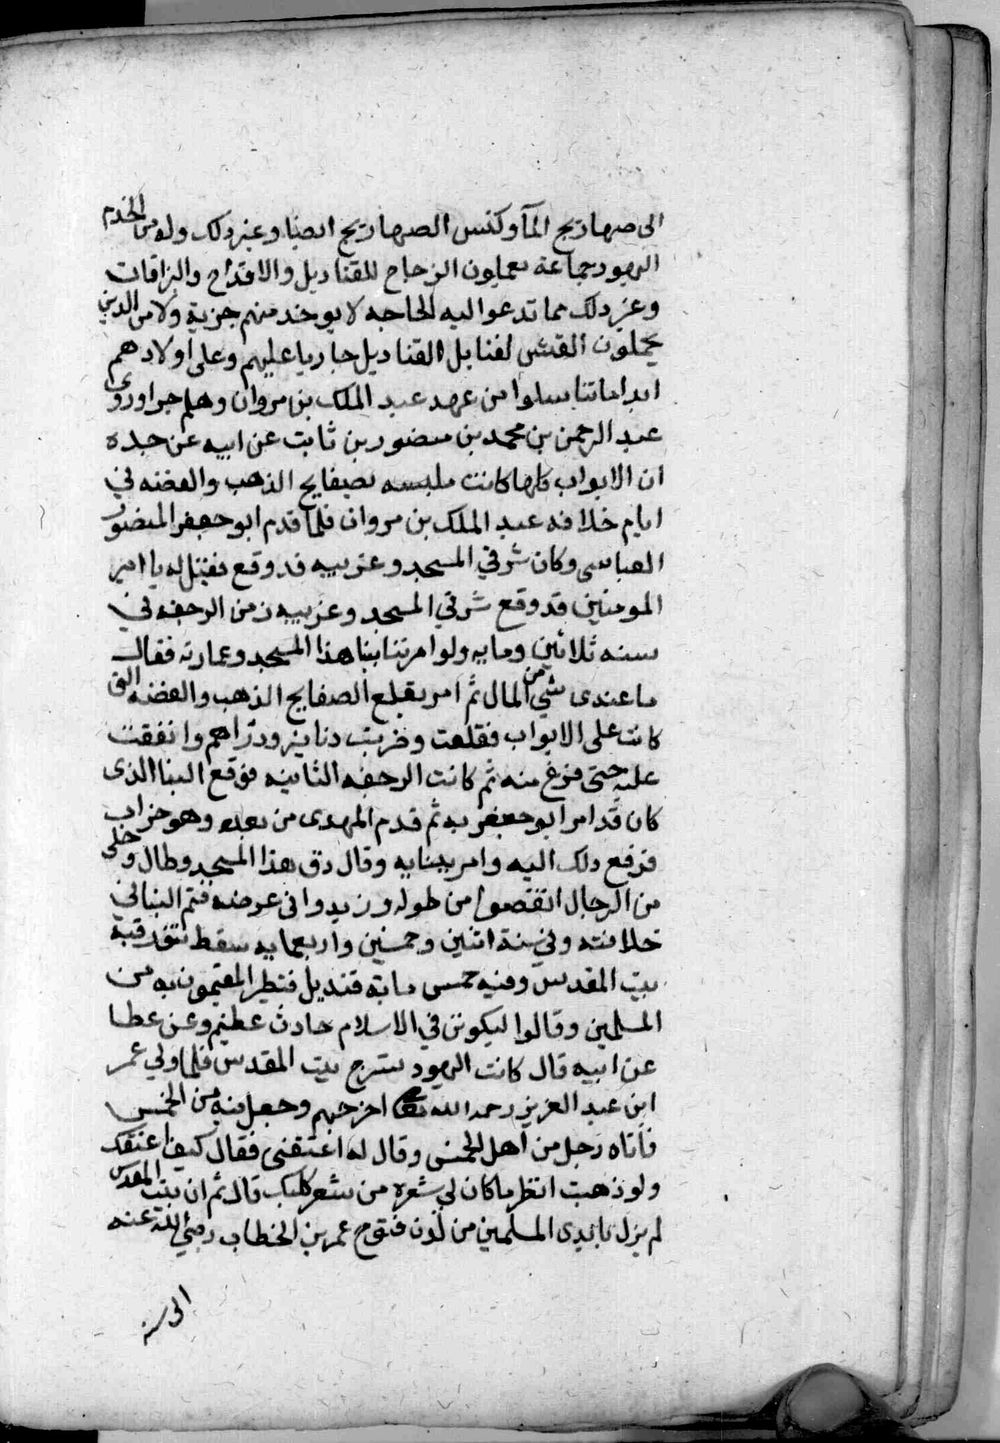 الى صهاريج المآ وكنس الصهاريج ايضا وغير ذلك وله من الخدم
اليهود جماعة يعملون الزجاج للقناديل والاقداح والبزاقات
وغير ذلك مما تدعو اليه الحاجه لا يوخذ منهم جزية ولا من الذين
يحملون القش لفتايل القناديل جاريا عليهم وعلى اولادهم
ابدا ما تناسلوا من عهد عبد الملك بن مروان وهلم جرا وروى
عبد الرحمن بن محمد بن منصور بن ثابت عن ابيه عن جده
ان الابواب كلها كانت ملبسه بصفايح الذهب والفضه في
ايام خلافه عبد الملك بن مروان فلما قدم ابو جعفر المنصور
العباسى وكان شرقي المسجد وغربيه قد وقع فقيل له يا امير
المومنين قد وقع شرقي المسجد وغربيه زمن الرجفه في
سنه ثلاثين ومايه ولو امرتنا ببنا هذا المسجد وعمارته فقال
ما عندى شي من المال ثم امر بقلع الصفايح الذهب والفضه التى
كانت على الابواب فقلعت وضربت دنانير ودراهم وانفقت
عليه حتى فرغ منه ثم كانت الرجفه الثانيه فوقع البنا الذى
كان قد امر ابو جعفر به ثم قدم المهدى من بعده وهو خراب
فرفع ذلك اليه وامر ببنايه وقال دق هذا المسجد وطال وخلى
من الرجال انقصوا من طوله وزيدوا فى عرضه فتم البنا في
خلافته وفي سنة اثنين وخمسين واربعمايه سقط تنور قبة
بيت المقدس وفيه خمس ماية قنديل فتطير المقيمون به من
المسلمين وقالوا ليكونن في الاسلام حادث عظيم وعن عطا
عن ابيه قال كانت اليهود تسرج بيت المقدس فلما ولي عمر
ابن عبد العزيز رحمه الله تعالى اخرجهم وجعل فيه من الخمس
فاتاه رجل من اهل الخمس وقال له اعتقنى فقال كيف اعتقك
ولو ذهبت انظر ما كان لي شعرة من شعر كلبك قال ثم ان بيت المقدس
لم يزل بايدى المسلمين من لدن فتوح عمر بن الخطاب رضي الله عنه
الى سنه